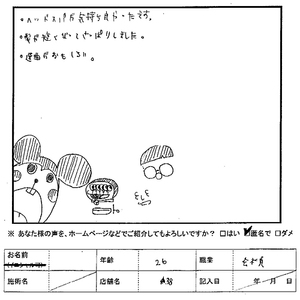 ・ヘッドスパが気持ち良かったです。
・髪が短くなってさっぱりしました。
・選曲がおもしろい。
※ あなた様の声を、ホームページなどでご紹介してもよろしいですか? □はい ☑匿名で □ダメ
お名前
年齢 26
職業 会社員
施術名
店舗名
記入日 年 月 日